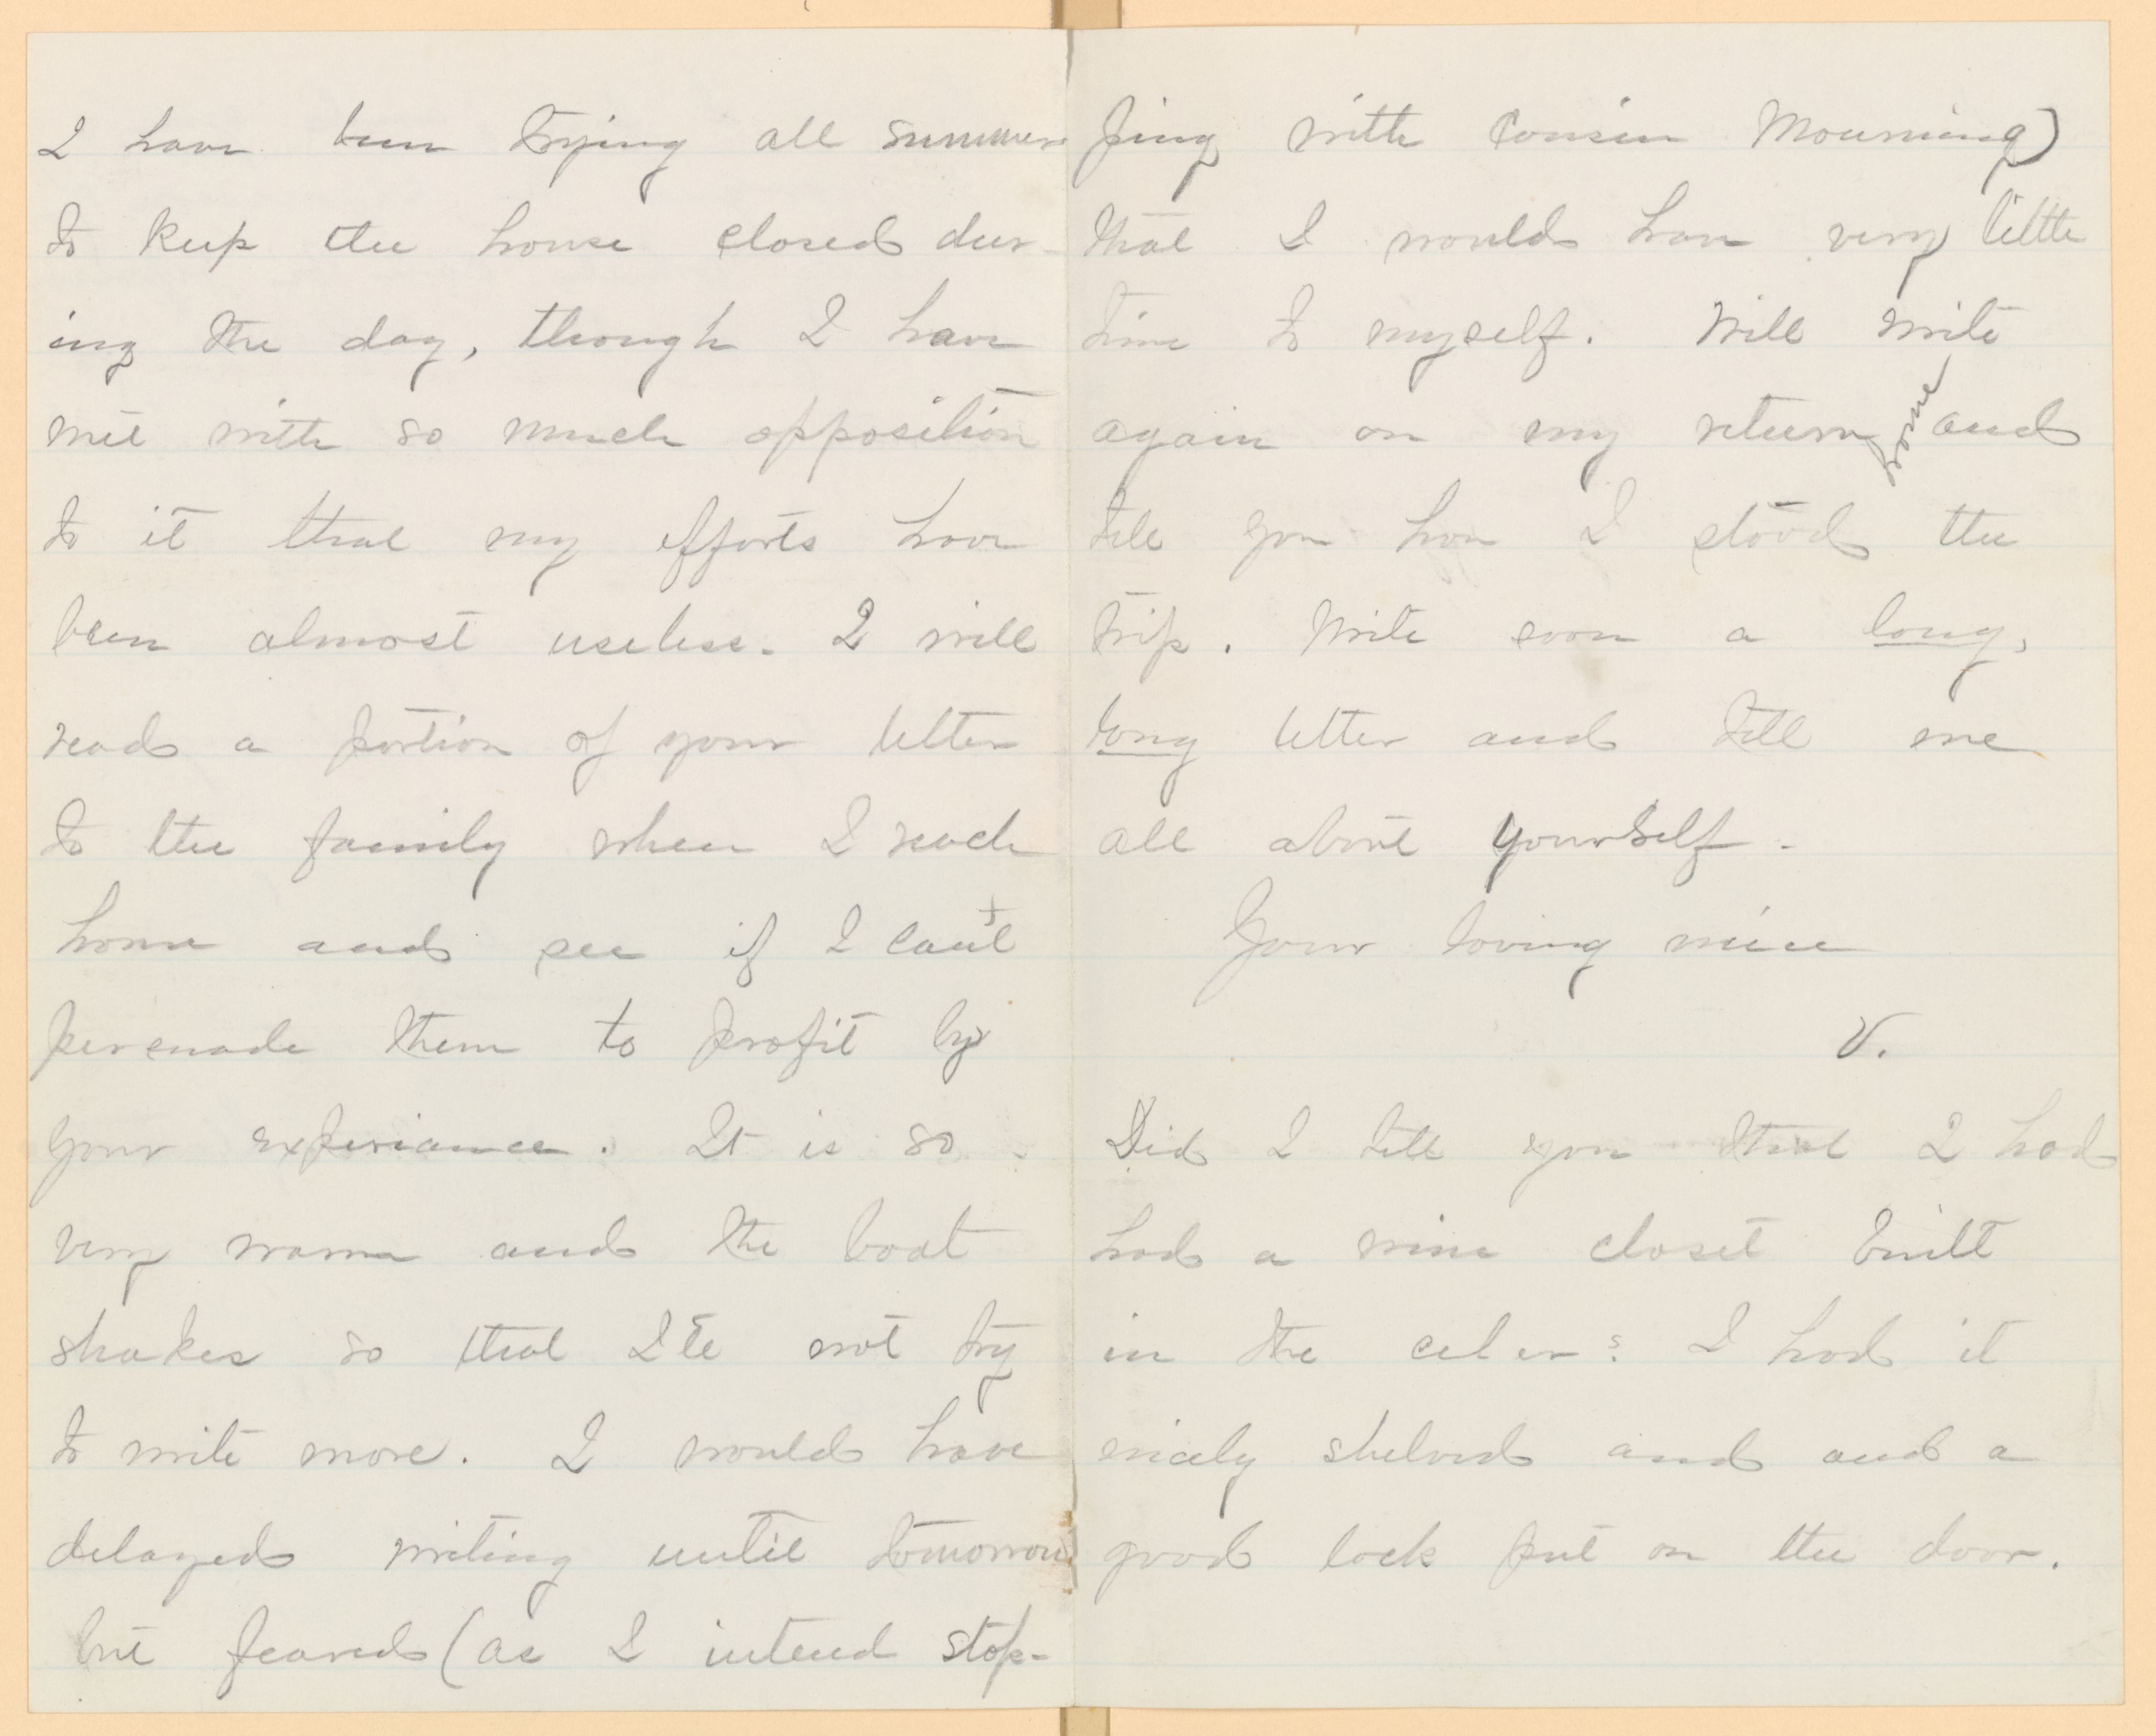 I have been trying all summer
to keep the house closed dur-
ing the day, though I have
met with so much opposition
to it that my efforts have
been almost useless. I will
read a portion of your letter
to the family when I reach
home and see if I can't
persuade them to profit by
your experiance. It is so
very warm and the boat
shakes so that I'll not try
to write more. I would have
delayed writing until tomorrow
but feared (as I intend stop-
ping with Cousin Mourning)
that I would have very little
time to myself. Will write
again on my return home and
tell you how I stood the
trip. Write soon a long,
long letter and tell me
all about yourself.
Your loving niece
V.
Did I tell you that I had
had a wine closet built
in the celer? I had it
nicely shelved and and a
good lock put on the door.